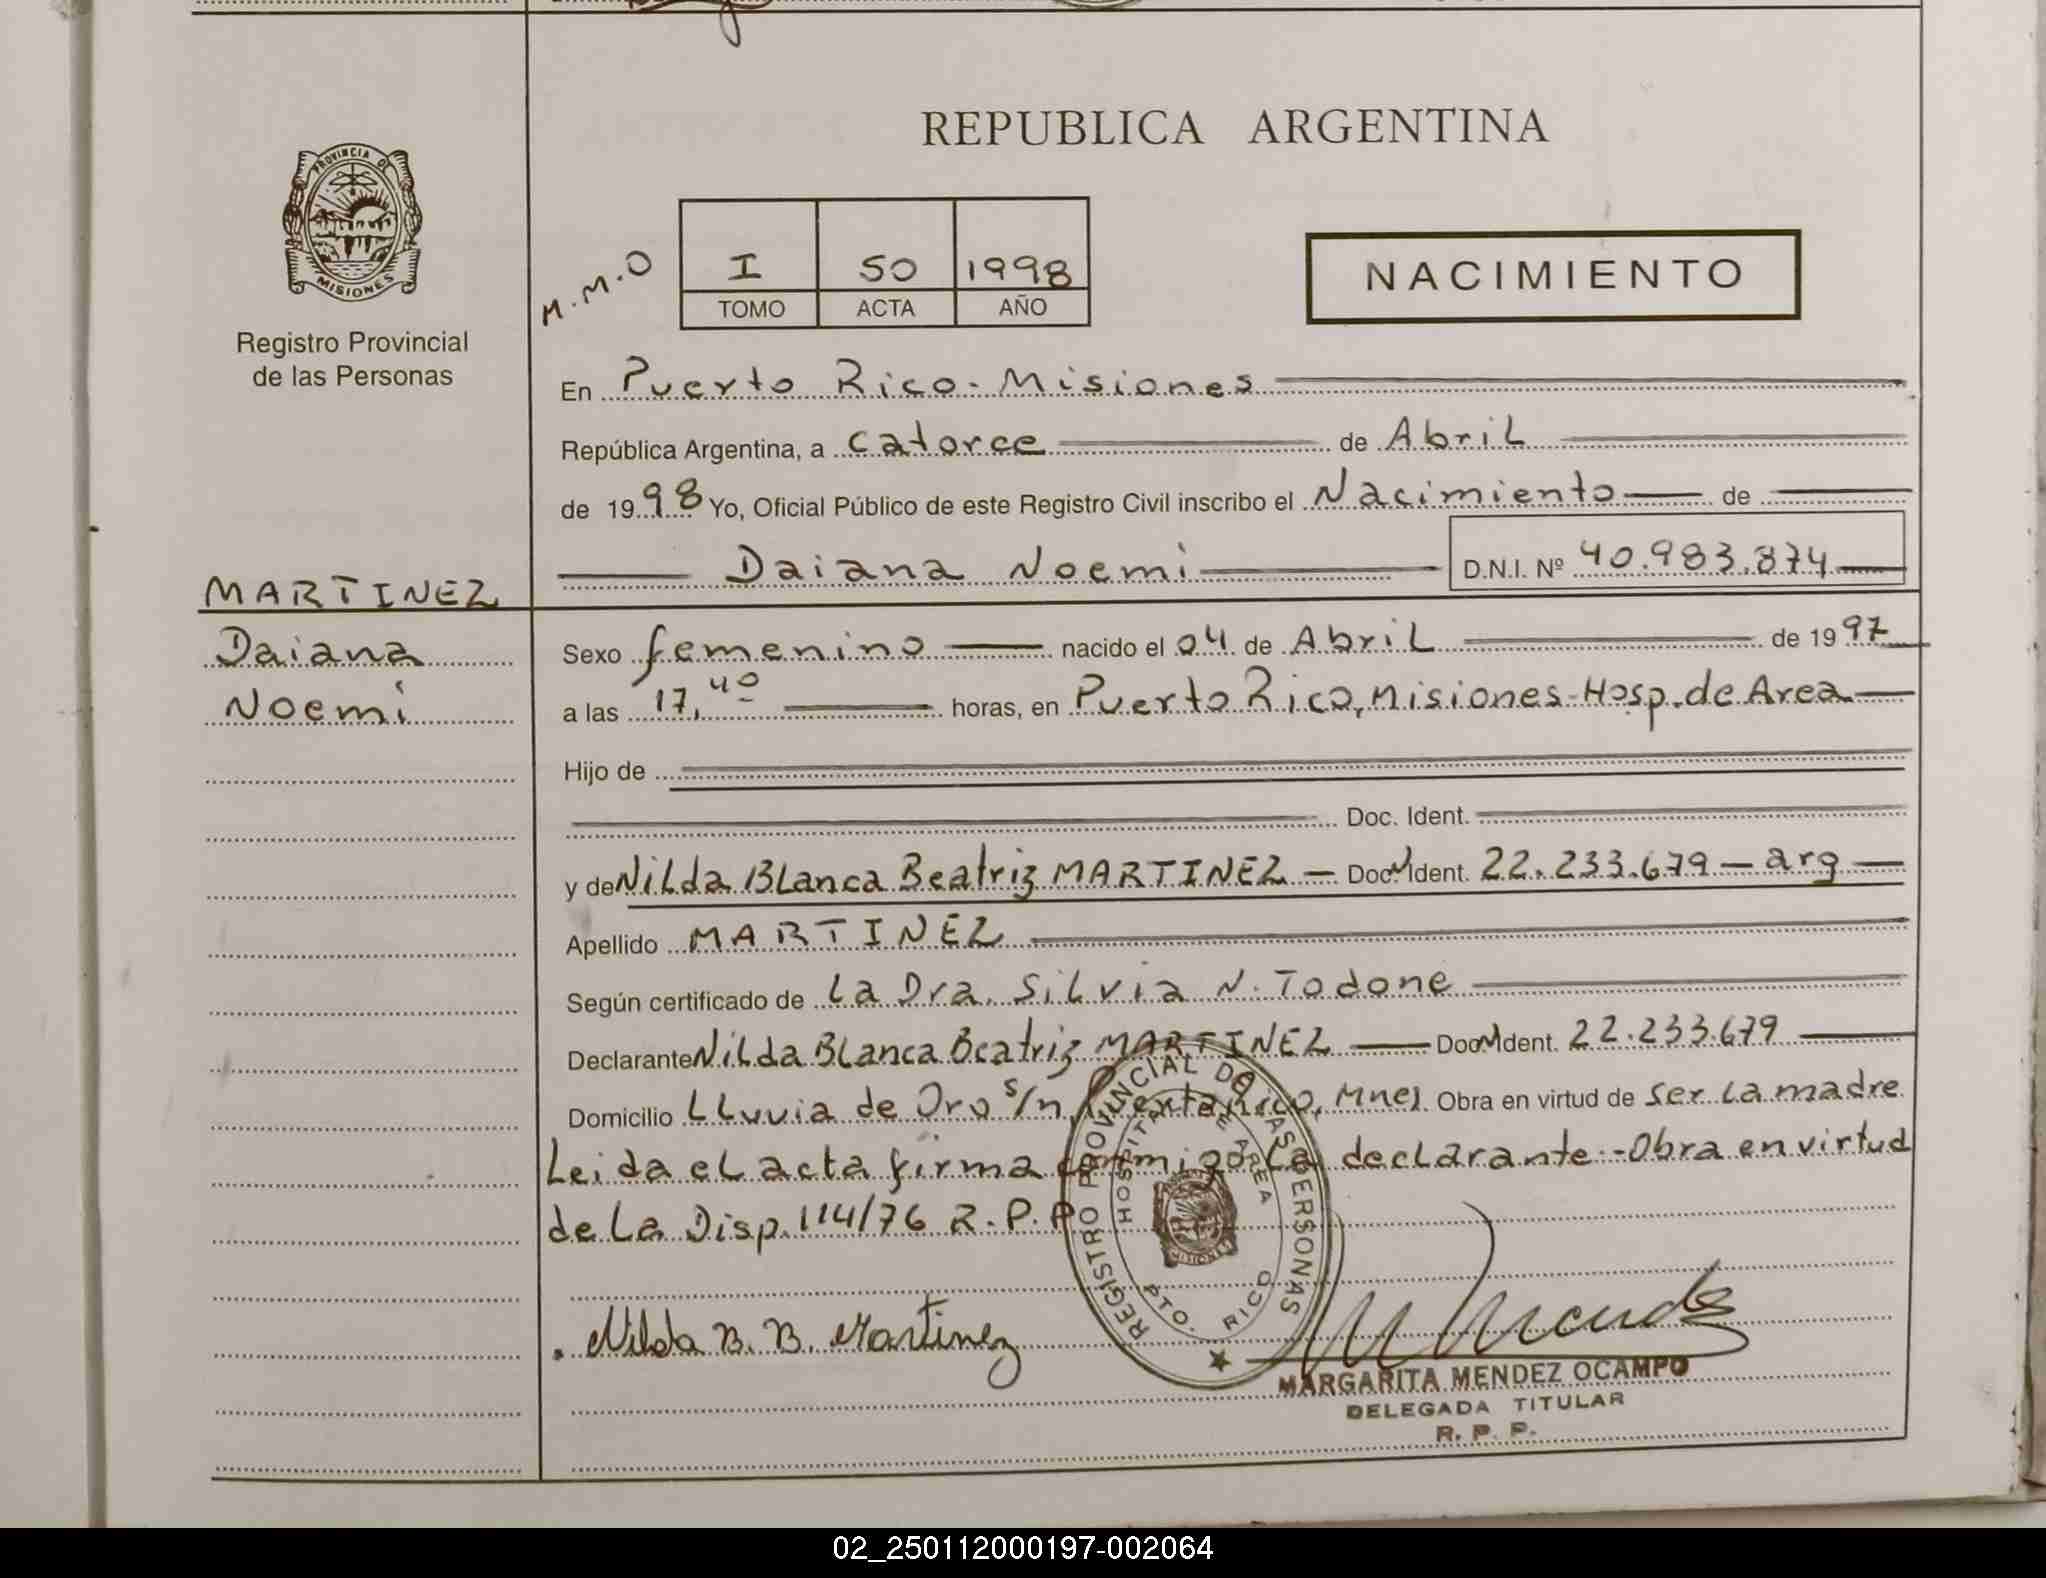 REPUBLICA ARGENTINA
PROVINCIA DE
MISIONES
Registro Provincial
de las Personas
M.M.O
I 50 1998
TOMO ACTA AÑO
NACIMIENTO
En Puerto Rico - Misiones
República Argentina, a catorce de Abril
de 1998 Yo, Oficial Público de este Registro Civil inscribo el Nacimiento de
Daiana Noemi D.N.I. Nº 40.983.874
MARTINEZ
Daiana
Noemi
Sexo femenino nacido el 04 de Abril de 1997
a las 17,40 horas, en Puerto Rico, Misiones-Hosp. de Area
Hijo de
Doc. Ident.
y de Nilda Blanca Beatriz MARTINEZ - Doc. Ident. 22.233.679 - arg
Apellido MARTINEZ
Según certificado de la Dra. Silvia N. Todone
Declarante Nilda Blanca Beatriz MARTINEZ Doc. Ident. 22.233.679
Domicilio LLuvia de Oro s/n, Puerto Rico, Mnes Obra en virtud de ser la madre
Leida el acta firma conmigo la declarante - Obra en virtud
de la Disp. 114/76 R.P.P
REGISTRO PROVINCIAL DE LAS PERSONAS
HOSPITAL DE AREA
PTO. RICO
MISIONES
Nilda B. B. Martinez
M Mendez
MARGARITA MENDEZ OCAMPO
DELEGADA TITULAR
R. P. P.
02_250112000197-002064